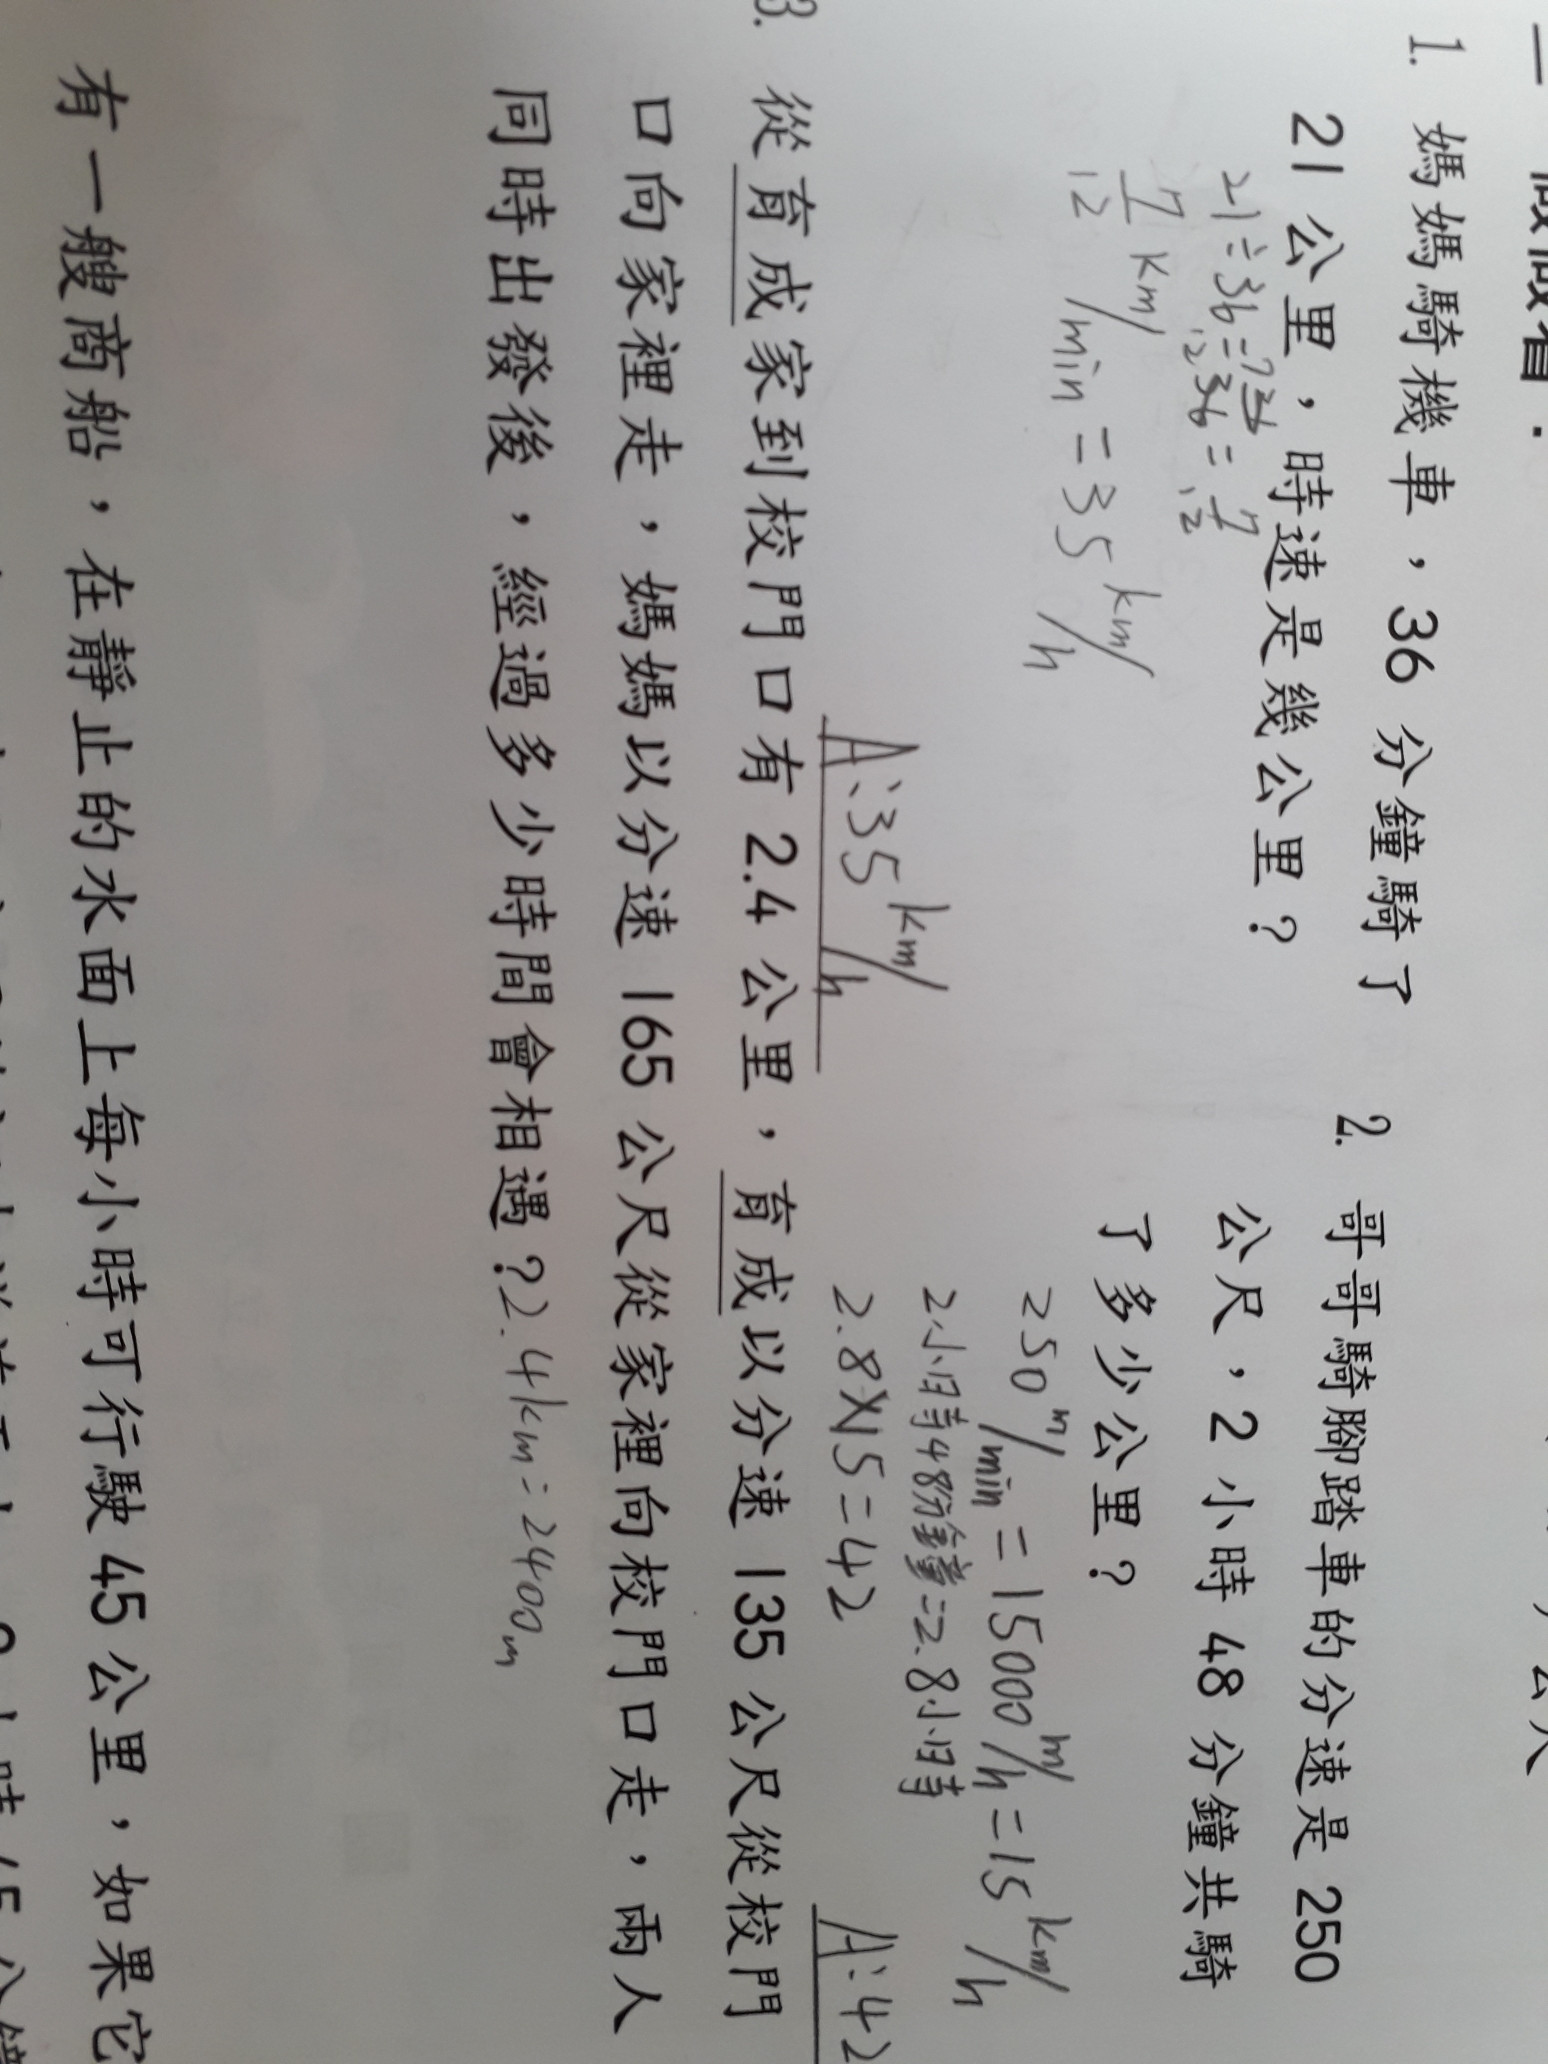 1. 媽媽騎機車，36 分鐘騎了
21 公里，時速是幾公里？
21÷36=
=7/12
7/12 km/min = 35 km/h
A:35 km/h
2. 哥哥騎腳踏車的分速是 250
公尺，2 小時 48 分鐘共騎
了多少公里？
250 m/min = 15000 m/h = 15 km/h
2小時48分鐘=2.8小時
2.8×15=42
A:42
3. 從育成家到校門口有 2.4 公里，育成以分速 135 公尺從校門
口向家裡走，媽媽以分速 165 公尺從家裡向校門口走，兩人
同時出發後，經過多少時間會相遇？2.4km=2400m
有一艘商船，在靜止的水面上每小時可行駛 45 公里，如果它